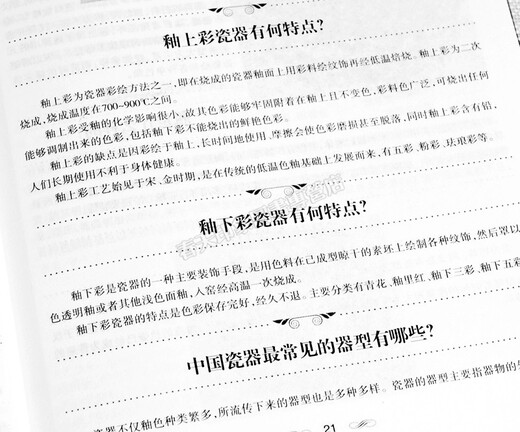 釉上彩瓷器有何特点?
釉上彩为瓷器彩绘方法之一,即在烧成的瓷器釉面上用彩料绘纹饰再经低温焙烧。釉上彩为二次
烧成,烧成温度在700~900℃之间。
釉上彩受釉的化学影响很小,故其色彩能够牢固附着在釉上且不变色,彩料色广泛,可烧出任何
能够调制出来的色彩,包括釉下彩不能烧出的鲜艳色彩。
釉上彩的缺点是因彩绘于釉上,长时间地使用、摩擦会使色彩磨损甚至脱落,同时釉上彩含有铅,
人们长期使用不利于身体健康。
釉上彩工艺始见于宋、金时期,是在传统的低温色釉基础上发展而来,有五彩、粉彩、珐琅彩等。
釉下彩瓷器有何特点?
釉下彩是瓷器的一种主要装饰手段,是用色料在已成型晾干的素坯上绘制各种纹饰,然后罩以
色透明釉或者其他浅色面釉,入窑经高温一次烧成。
釉下彩瓷器的特点是色彩保存完好,经久不退。主要分类有青花、釉里红、釉下三彩、釉下五彩
中国瓷器最常见的器型有哪些?
瓷器不仅釉色种类繁多,所流传下来的器型也是多种多样。瓷器的器型主要指器物的
21